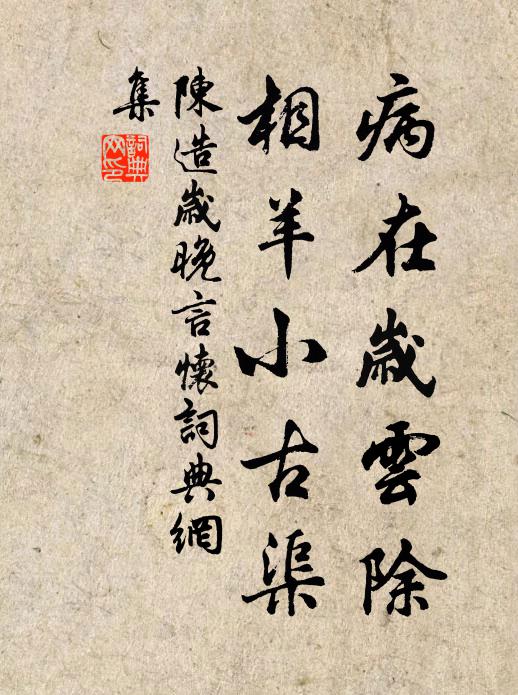 病在歲雲除
相羊小古渠
陳造歲晚言懷詞典網
集
詞典
网印